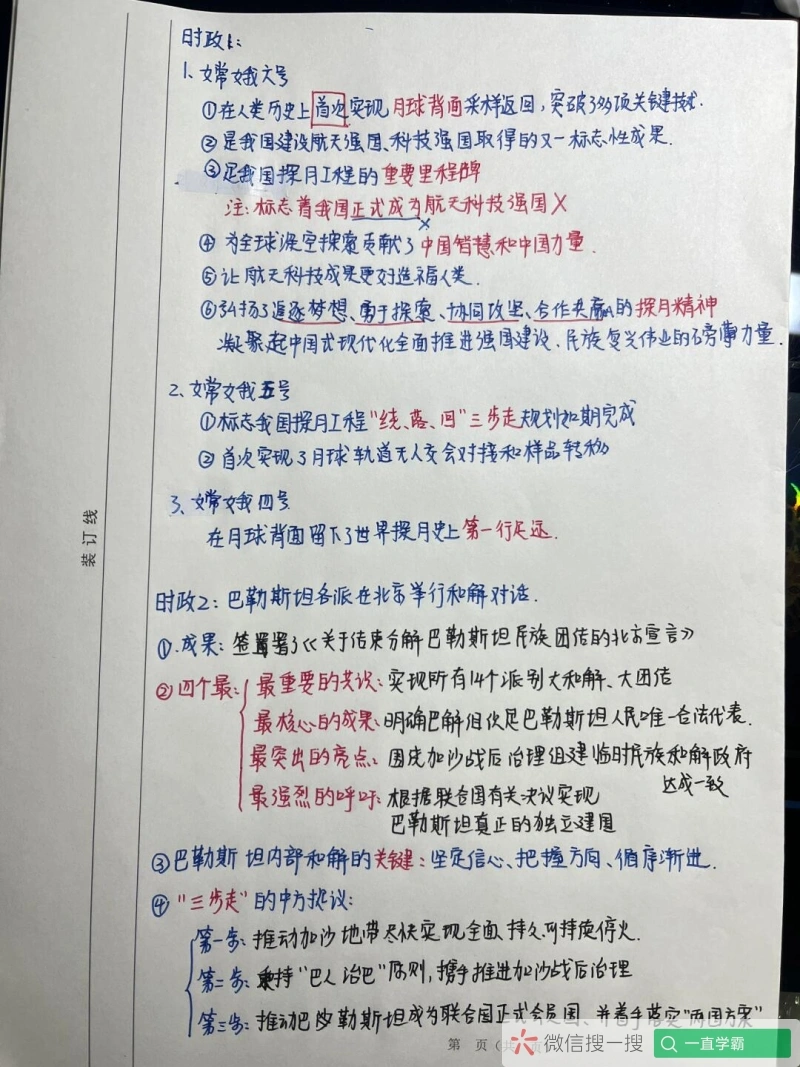 时政1:
1、嫦娥六号
①在人类历史上首次实现月球背面采样返回，突破了多项关键技术.
②是我国建设航天强国、科技强国取得的又一标志性成果.
③是我国探月工程的重要里程碑
注:标志着我国正式成为航天科技强国X
X
④ 为全球深空探索贡献了中国智慧和中国力量.
⑤让航天科技成果更好造福人类.
⑥弘扬了追逐梦想、勇于探索、协同攻坚、合作共赢的探月精神
凝聚起中国式现代化全面推进强国建设、民族复兴伟业的磅礴力量.
2、嫦娥五号
①标志我国探月工程“绕、落、回”三步走规划如期完成
②首次实现了月球轨道无人交会对接和样品转移
3、嫦娥四号
在月球背面留下了世界探月史上第一行足迹.
装订线
时政2:巴勒斯坦各派在北京举行和解对话.
①.成果:签署了《关于结束分裂巴勒斯坦民族团结的北京宣言》
②四个最:最重要的共识:实现所有14个派别大和解、大团结
最核心的成果:明确巴解组织是巴勒斯坦人民唯一合法代表.
最突出的亮点:围绕加沙战后治理组建临时民族和解政府
达成一致
最强烈的呼吁:根据联合国有关决议实现
巴勒斯坦真正的独立建国
③巴勒斯坦内部和解的关键:坚定信心、把握方向、循序渐进.
④“三步走”的中方提议:
第一步:推动加沙地带尽快实现全面、持久、可持续停火.
第二步:秉持“巴人治巴”原则，携手推进加沙战后治理
第三步:推动巴勒斯坦成为联合国正式会员国，并着手落实“两国方案”
第 页（共 页
微信搜一搜
一直学霸